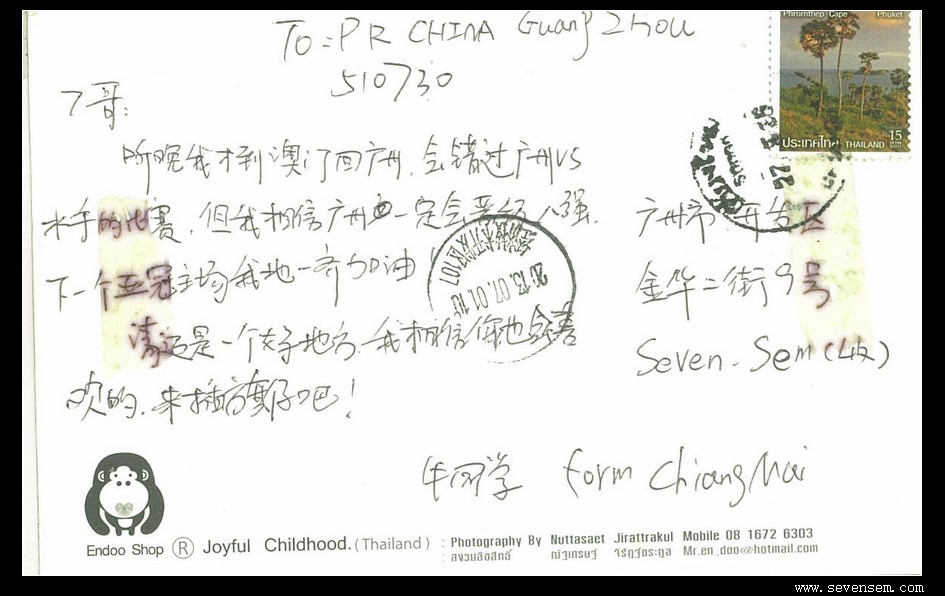 To: PR CHINA Guang Zhou
510730
Phromthep Cape Phuket
15
ประเทศไทย THAILAND
7哥:
昨晚我才到澳门回广州,会错过广州VS
水手的比赛,但我相信广州一定会晋级八强.
下一个亚冠主场我地一齐加油
清迈是一个好地方,我相信你也会喜
欢的.来插方旗仔吧!
广州市 开发区
金华二街9号
Seven.Sem(收)
2013.07.01
牛同学 form Chiang Mai
Endoo Shop ® Joyful Childhood.(Thailand)
: Photography By Nuttasaet Jirattrakul Mobile 08 1672 6303
: สงวนลิขสิทธิ์ Mr.en_doo@hotmail.com
www.sevensem.com